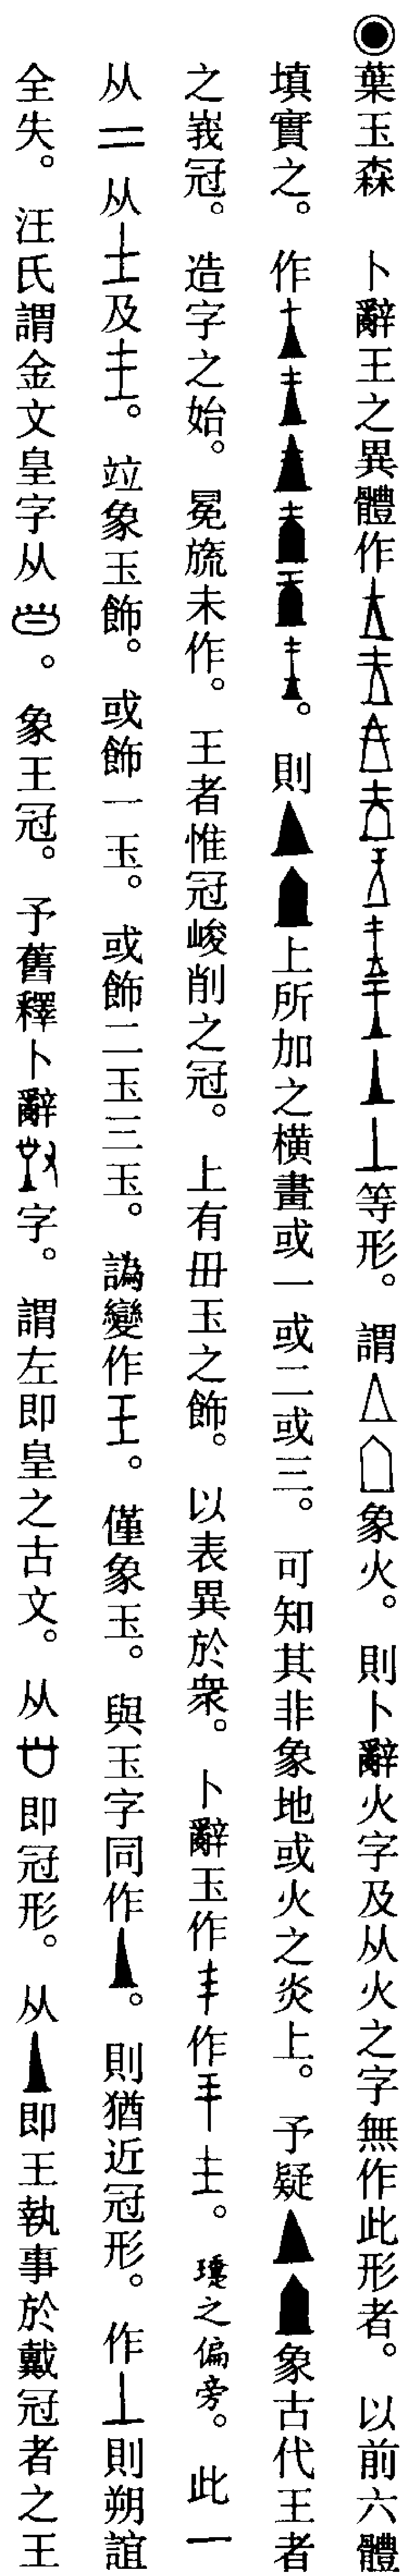 ◉葉玉森　卜辭王之異體作等形。謂象火。則卜辭火字及从火之字無作此形者。以前六體
填實之。作。則上所加之橫畫或一或二或三。可知其非象地或火之炎上。予疑象古代王者
之峩冠。造字之始。冕旒未作。王者惟冠峻削之冠。上有毌玉之飾。以表異於衆。卜辭玉作作。之偏旁。此一
从二从及。竝象玉飾。或飾一玉。或飾二玉三玉。譌變作。僅象玉。與玉字同作。則猶近冠形。作則朔誼
全失。汪氏謂金文皇字从。象王冠。予舊釋卜辭字。謂左即皇之古文。从即冠形。从即王執事於戴冠者之王